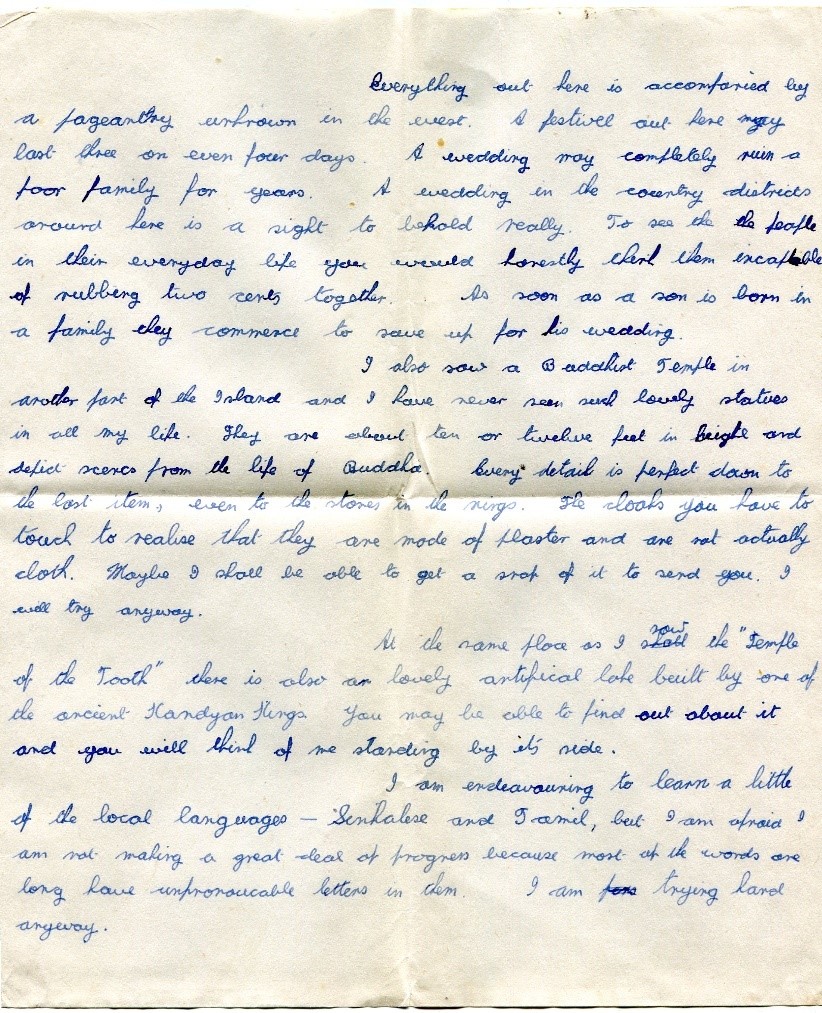 Everything out here is accompanied by
a pageantry unknown in the west. A festivel out here may
last three on even four days. A wedding may completely ruin a
poor family for years. A wedding in the country districts
around here is a sight to behold really. To see the the people
in their everyday life you would honestly think them incapable
of rubbing two cents together. As soon as a son is born in
a family they commence to save up for his wedding.
I also saw a Buddhist Temple in
another part of the Island and I have never seen such lovely statues
in all my life. They are about ten or twelve feet in height and
depict scenes from the life of Buddha. Every detail is perfect down to
the last item, even to the stones in the rings. The cloaks you have to
touch to realise that they are made of plaster and are not actually
cloth. Maybe I shall be able to get a snap of it to send you. I
will try anyway.
At the same place as I saw the "Temple
of the Tooth" there is also an lovely artifical lake built by one of
the ancient Kandyan Kings. You may be able to find out about it
and you will think of me standing by it's side.
I am endeavouring to learn a little
of the local languages — Sinhalese and Tamil, but I am afraid I
am not making a great deal of progress because most of the words are
long have unpronoucable letters in them. I am trying hard
anyway.